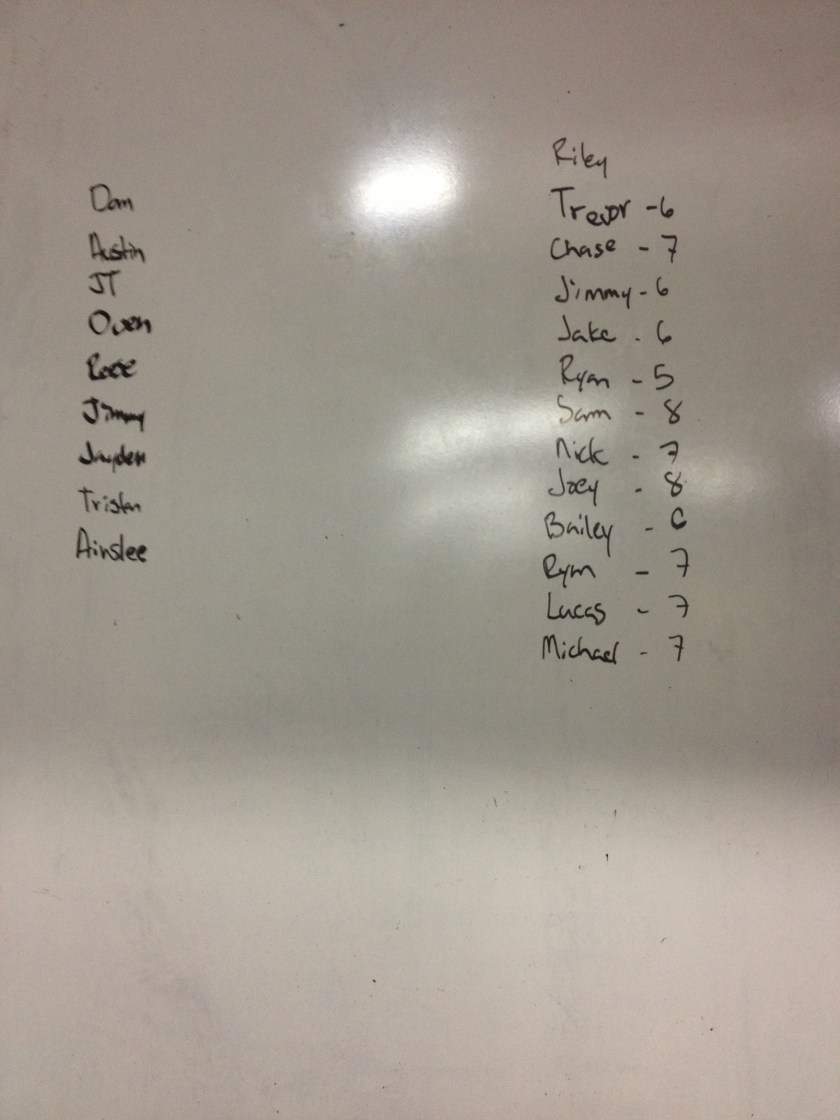 Dom
Austin
JT
Owen
Reece
Jimmy
Jayden
Tristan
Ainslee
Riley
Trevor - 6
Chase - 7
Jimmy - 6
Jake - 6
Ryan - 5
Sam - 8
Nick - 7
Joey - 8
Bailey - 6
Ryan - 7
Lucas - 7
Michael - 7